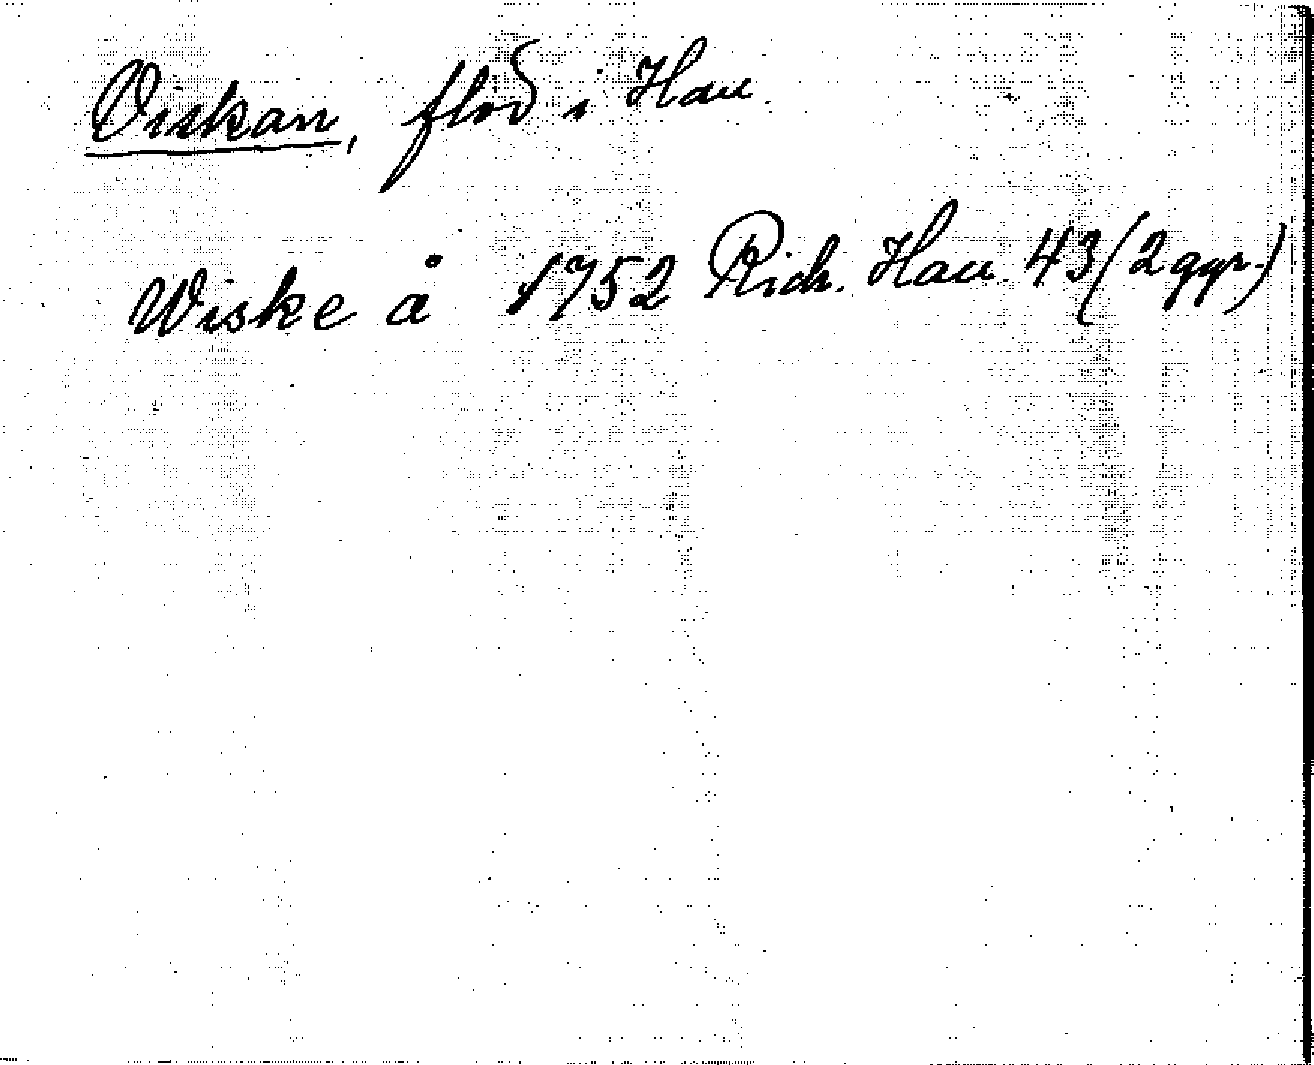 Viskan, flod i Hall.
Wiske å 1752 Rich. Hall. 43 (2 ggr.)